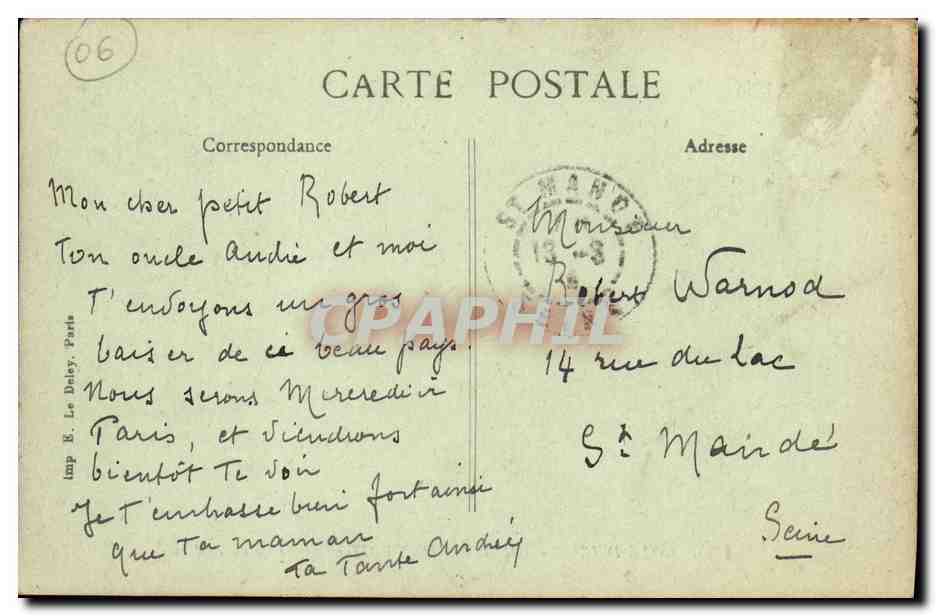 06
CARTE POSTALE
Correspondance
Adresse
Mon cher petit Robert
Ton oncle André et moi
t'envoyons un gros
baiser de ce beau pays.
Nous serons Mercredi à
Paris, et viendrons
bientôt te voir
Je t'embrasse bien fort ainsi
que ta maman
ta Tante Andrée
ST MANDÉ
13 -3
Monsieur
Robert Warnod
14 rue du Lac
St Mandé
Seine
Imp E. Le Deley, Paris
CPAPHIL